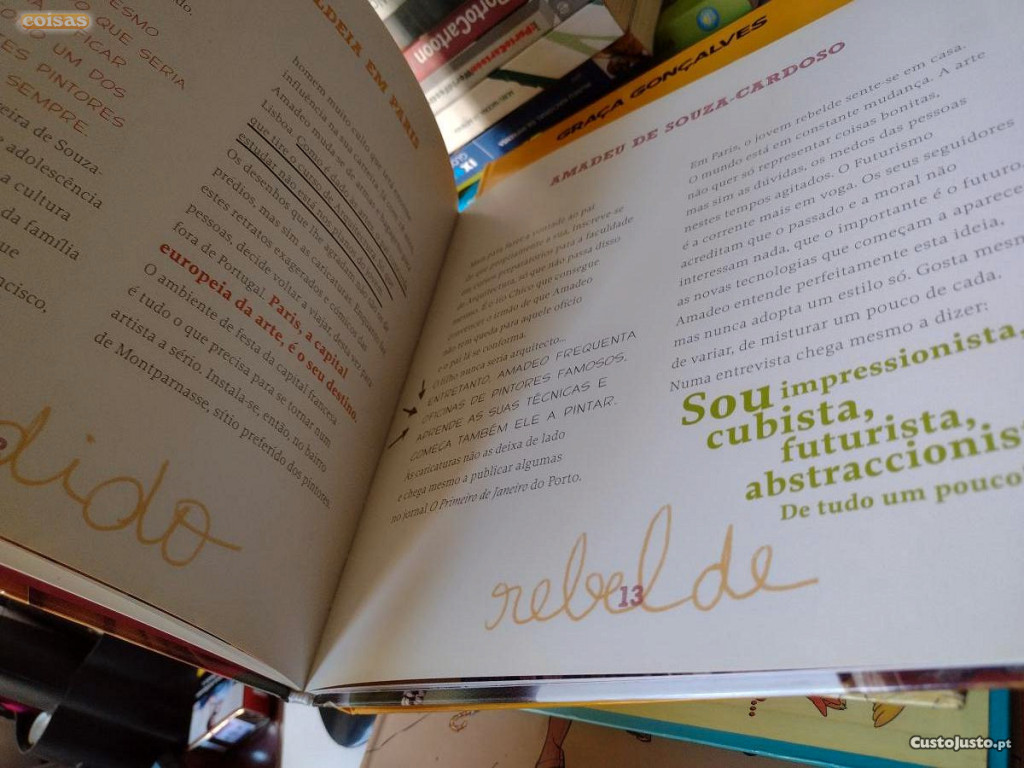 coisas
MESMO
O QUE SERIA
FICAR
UM DOS
ES PINTORES
SEMPRE.
eira de Souza.
e adolescência
a cultura
da família
que
ncisco,
LDEIA EM PARIS
homem muito culto que terá grande
influência na sua carreira. Já com
Amadeo muda-se de armas e bagagens para
Lisboa. Como é dado às artes,
que tire o curso de Arquitectura. Mas
estudar não está nos planos do jovem
Os desenhos que lhe agradam não são de
prédios, mas sim as caricaturas. Enquanto faz
estes retratos exagerados e cómicos das
pessoas, decide voltar a viajar, desta vez para
fora de Portugal. Paris, a capital
europeia da arte, é o seu destino.
O ambiente de festa da capital francesa
é tudo o que precisa para se tornar num
artista a sério. Instala-se, então, no bairro
de Montparnasse, sítio preferido dos pintores.
dido
PortoCartoon
GRAÇA GONÇALVES
AMADEU DE SOUZA-CARDOSO
Mas para fazer a vontade ao pai
de que conquistaria a sua, inscreve-se
em cursos preparatórios para a faculdade
de Arquitectura, só que não passa disso
mesmo. É o tio Chico que consegue
convencer o irmão de que Amadeo
não tem queda para aquele ofício
e o pai lá se conforma.
O filho nunca seria arquitecto...
ENTRETANTO, AMADEO FREQUENTA
OFICINAS DE PINTORES FAMOSOS,
APRENDE AS SUAS TÉCNICAS E
COMEÇA TAMBÉM ELE A PINTAR.
As caricaturas não as deixa de lado
e chega mesmo a publicar algumas
no jornal O Primeiro de Janeiro do Porto.
Em Paris, o jovem rebelde sente-se em casa.
O mundo está em constante mudança. A arte
não quer só representar coisas bonitas,
mas sim as dúvidas, os medos das pessoas
nestes tempos agitados. O Futurismo
é a corrente mais em voga. Os seus seguidores
acreditam que o passado e a moral não
interessam nada, que o importante é o futuro,
as novas tecnologias que começam a aparece
Amadeo entende perfeitamente esta ideia,
mas nunca adopta um estilo só. Gosta mesm
de variar, de misturar um pouco de cada.
Numa entrevista chega mesmo a dizer:
Sou impressionista,
cubista,
futurista,
abstraccionis
De tudo um pouco!
rebelde
13
CustoJusto.pt